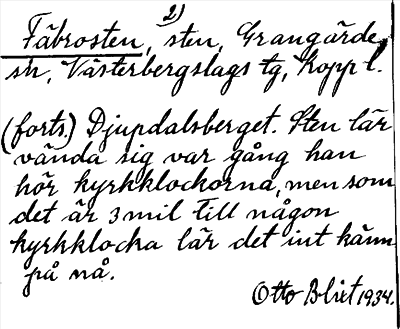 2)
Fäbrosten, sten, Grangärde
sn, Västerbergslags tg, Kopp l.
(forts.) Djupdalsberget. Sten lär
vända sig var gång han
hör kyrkklockorna, men som
det är 3 mil till någon
kyrkklocka lär det int känn
på nå.
Otto Blixt 1934.